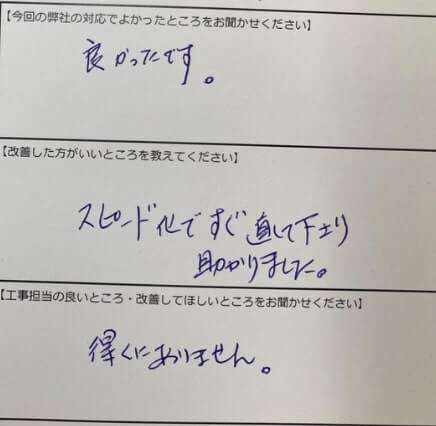 【今回の弊社の対応でよかったところをお聞かせください】
良かったです。
【改善した方がいいところを教えてください】
スピード化ですぐ直して下さり
助かりました。
【工事担当の良いところ・改善してほしいところをお聞かせください】
得くにありません。